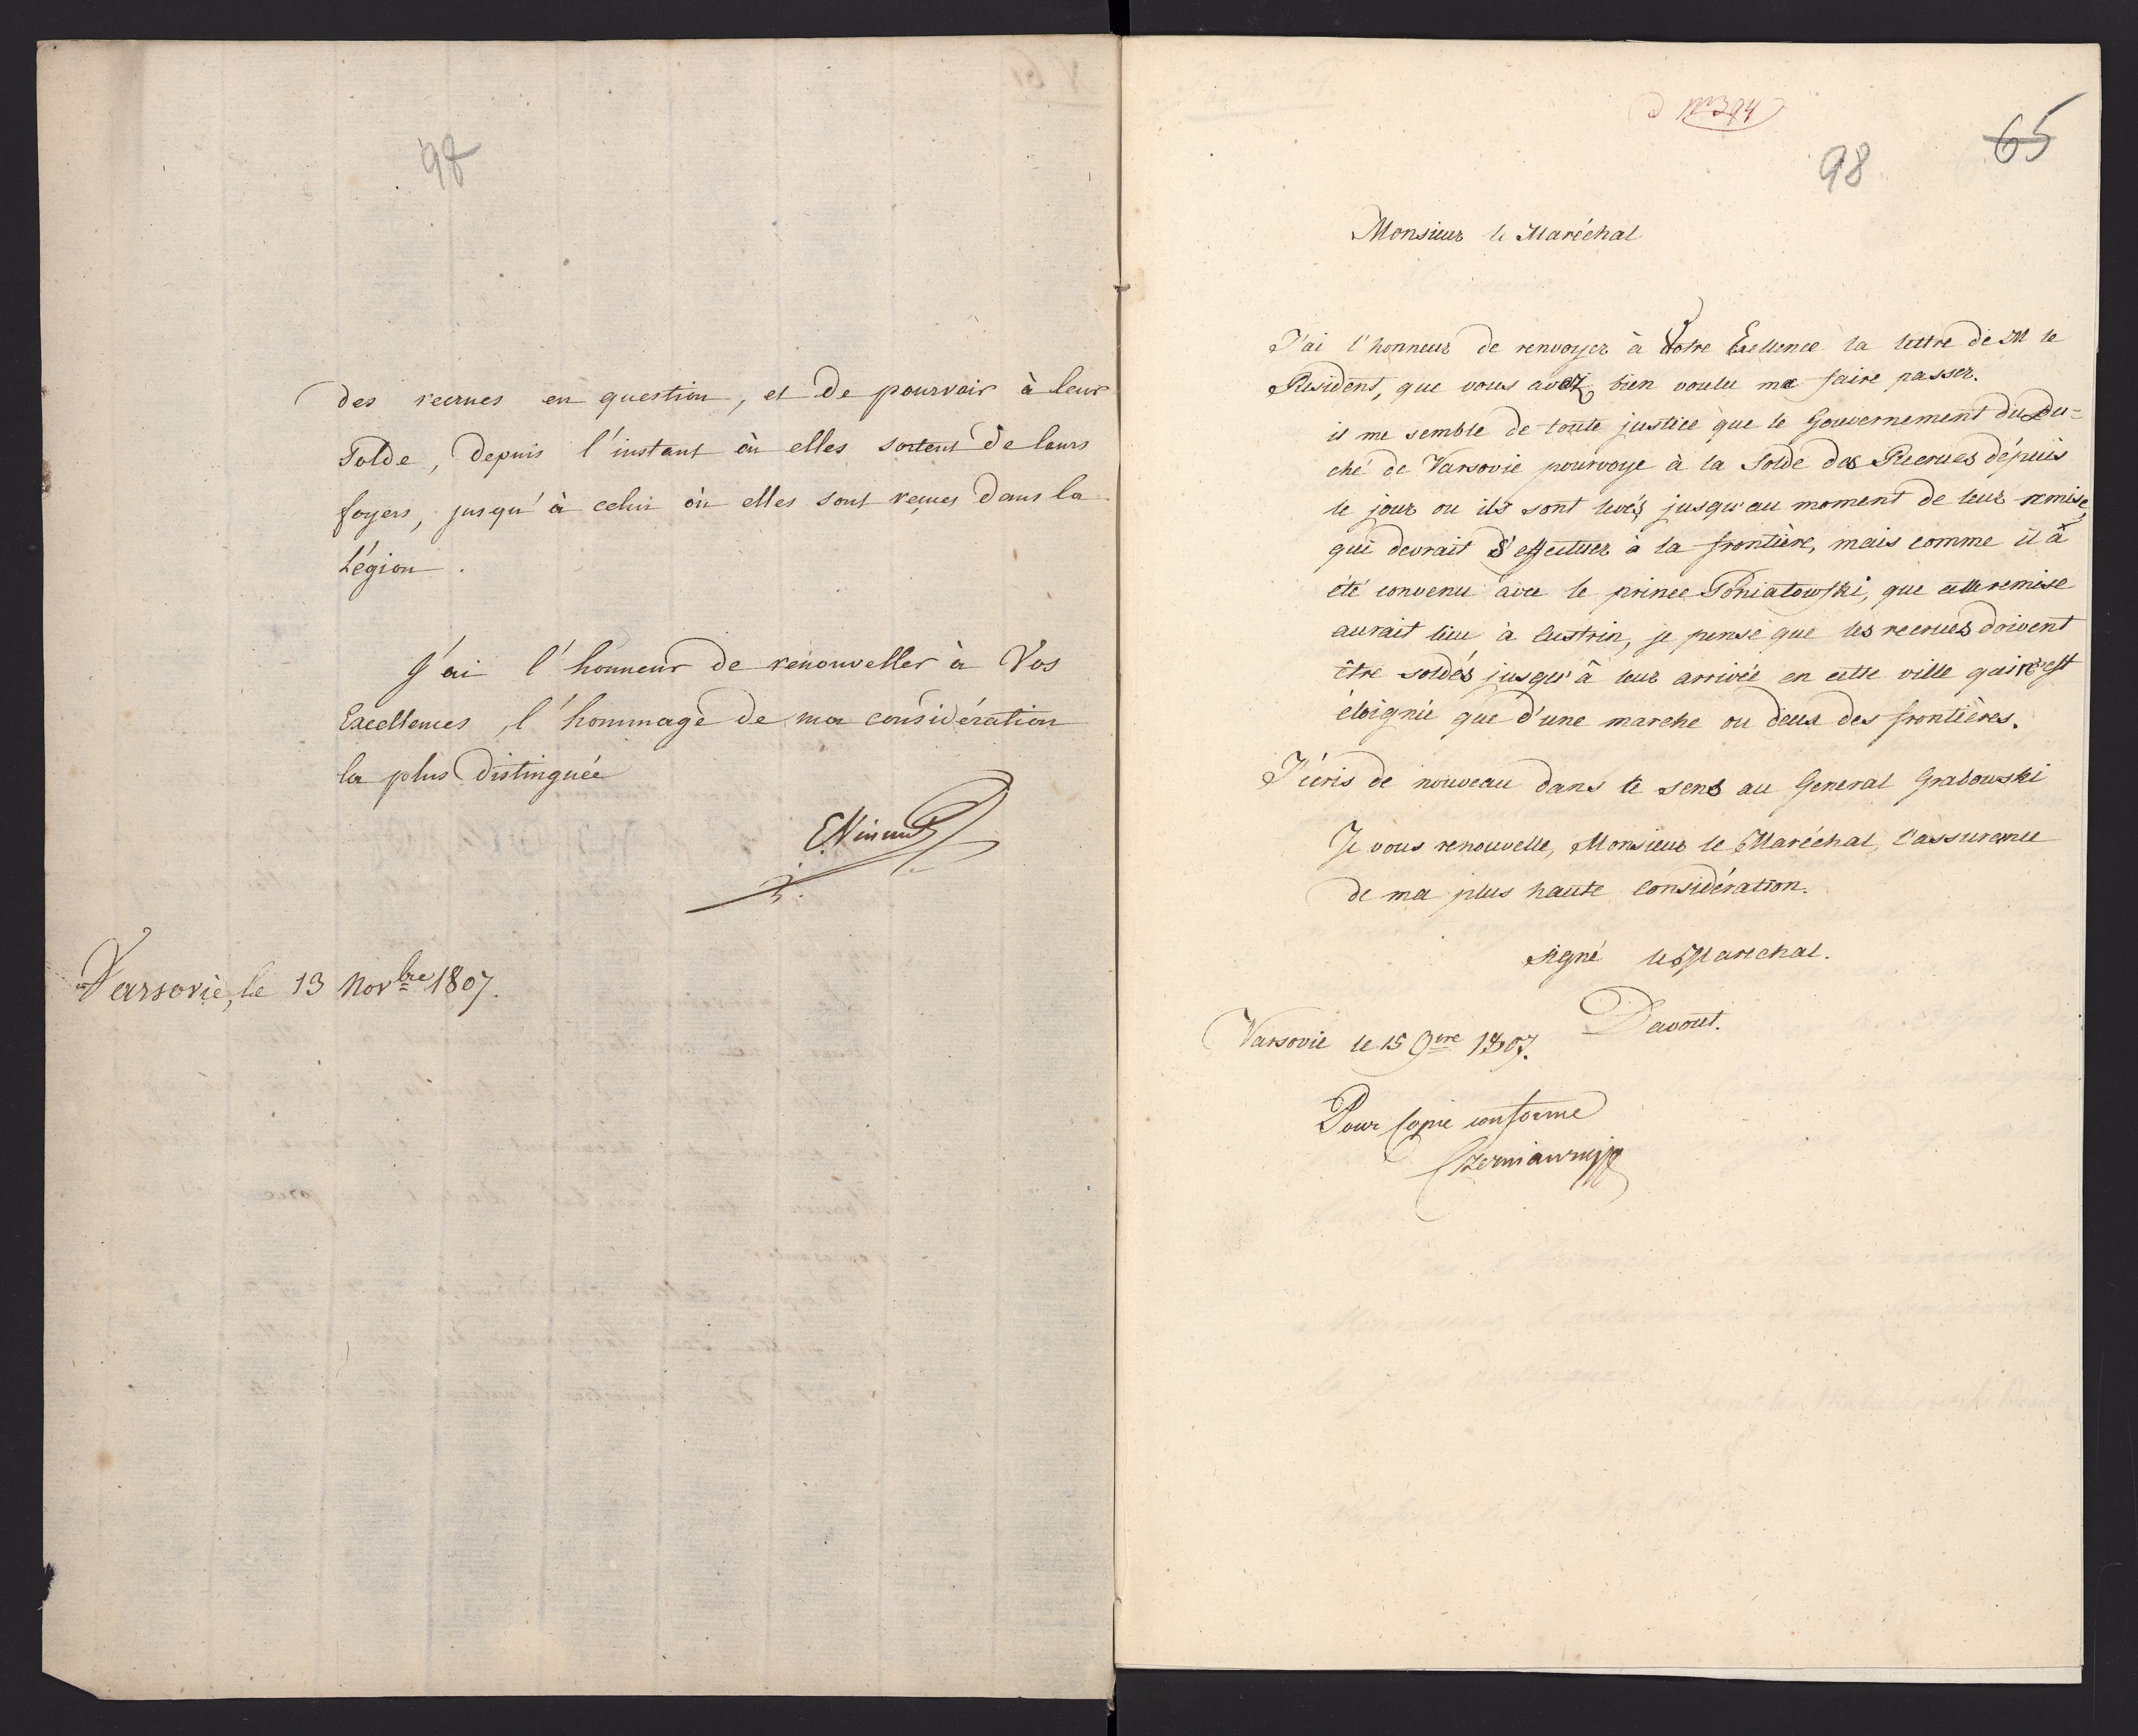 98
des recrues en question, et de pourvoir à leur
Solde, depuis l'instant où elles sortent de leurs
foyers, jusqu'à celui où elles sont reçues dans la
Légion.
J'ai l'honneur de renouveller à Vos
Excellences, l'hommage de ma considération
la plus distinguée
EVincent
Varsovie, le 13 Novbre 1807.
N 394
98
65
Monsieur le Maréchal
J'ai l'honneur de renvoyer à Votre Exellence la lettre de M le
President, que vous avez bien voulu me faire passer.
il me semble de toute justice que le Gouvernement du Du=
ché de Varsovie pourvoye à la Solde des Recrues dépuis
le jour ou ils sont levés jusqu'au moment de leur remise,
qui devrait s'effectuer à la frontière, mais comme il à
été convenu avec le prince Poniatowski, que cette remise
aurait lieu à Custrin, je pense que les recrues doivent
être soldés jusqu'â leur arrivée en cette ville qui n'est
éloignée que d'une marche ou deus des frontières.
J'écris de nouveau dans le sens au General Grabowski
Je vous renouvelle, Monsieur le Maréchal, l'assurance
de ma plus haute considération.
signé le Marechal.
Davout.
Varsovie le 15 9bre 1807.
Pour Copie conforme